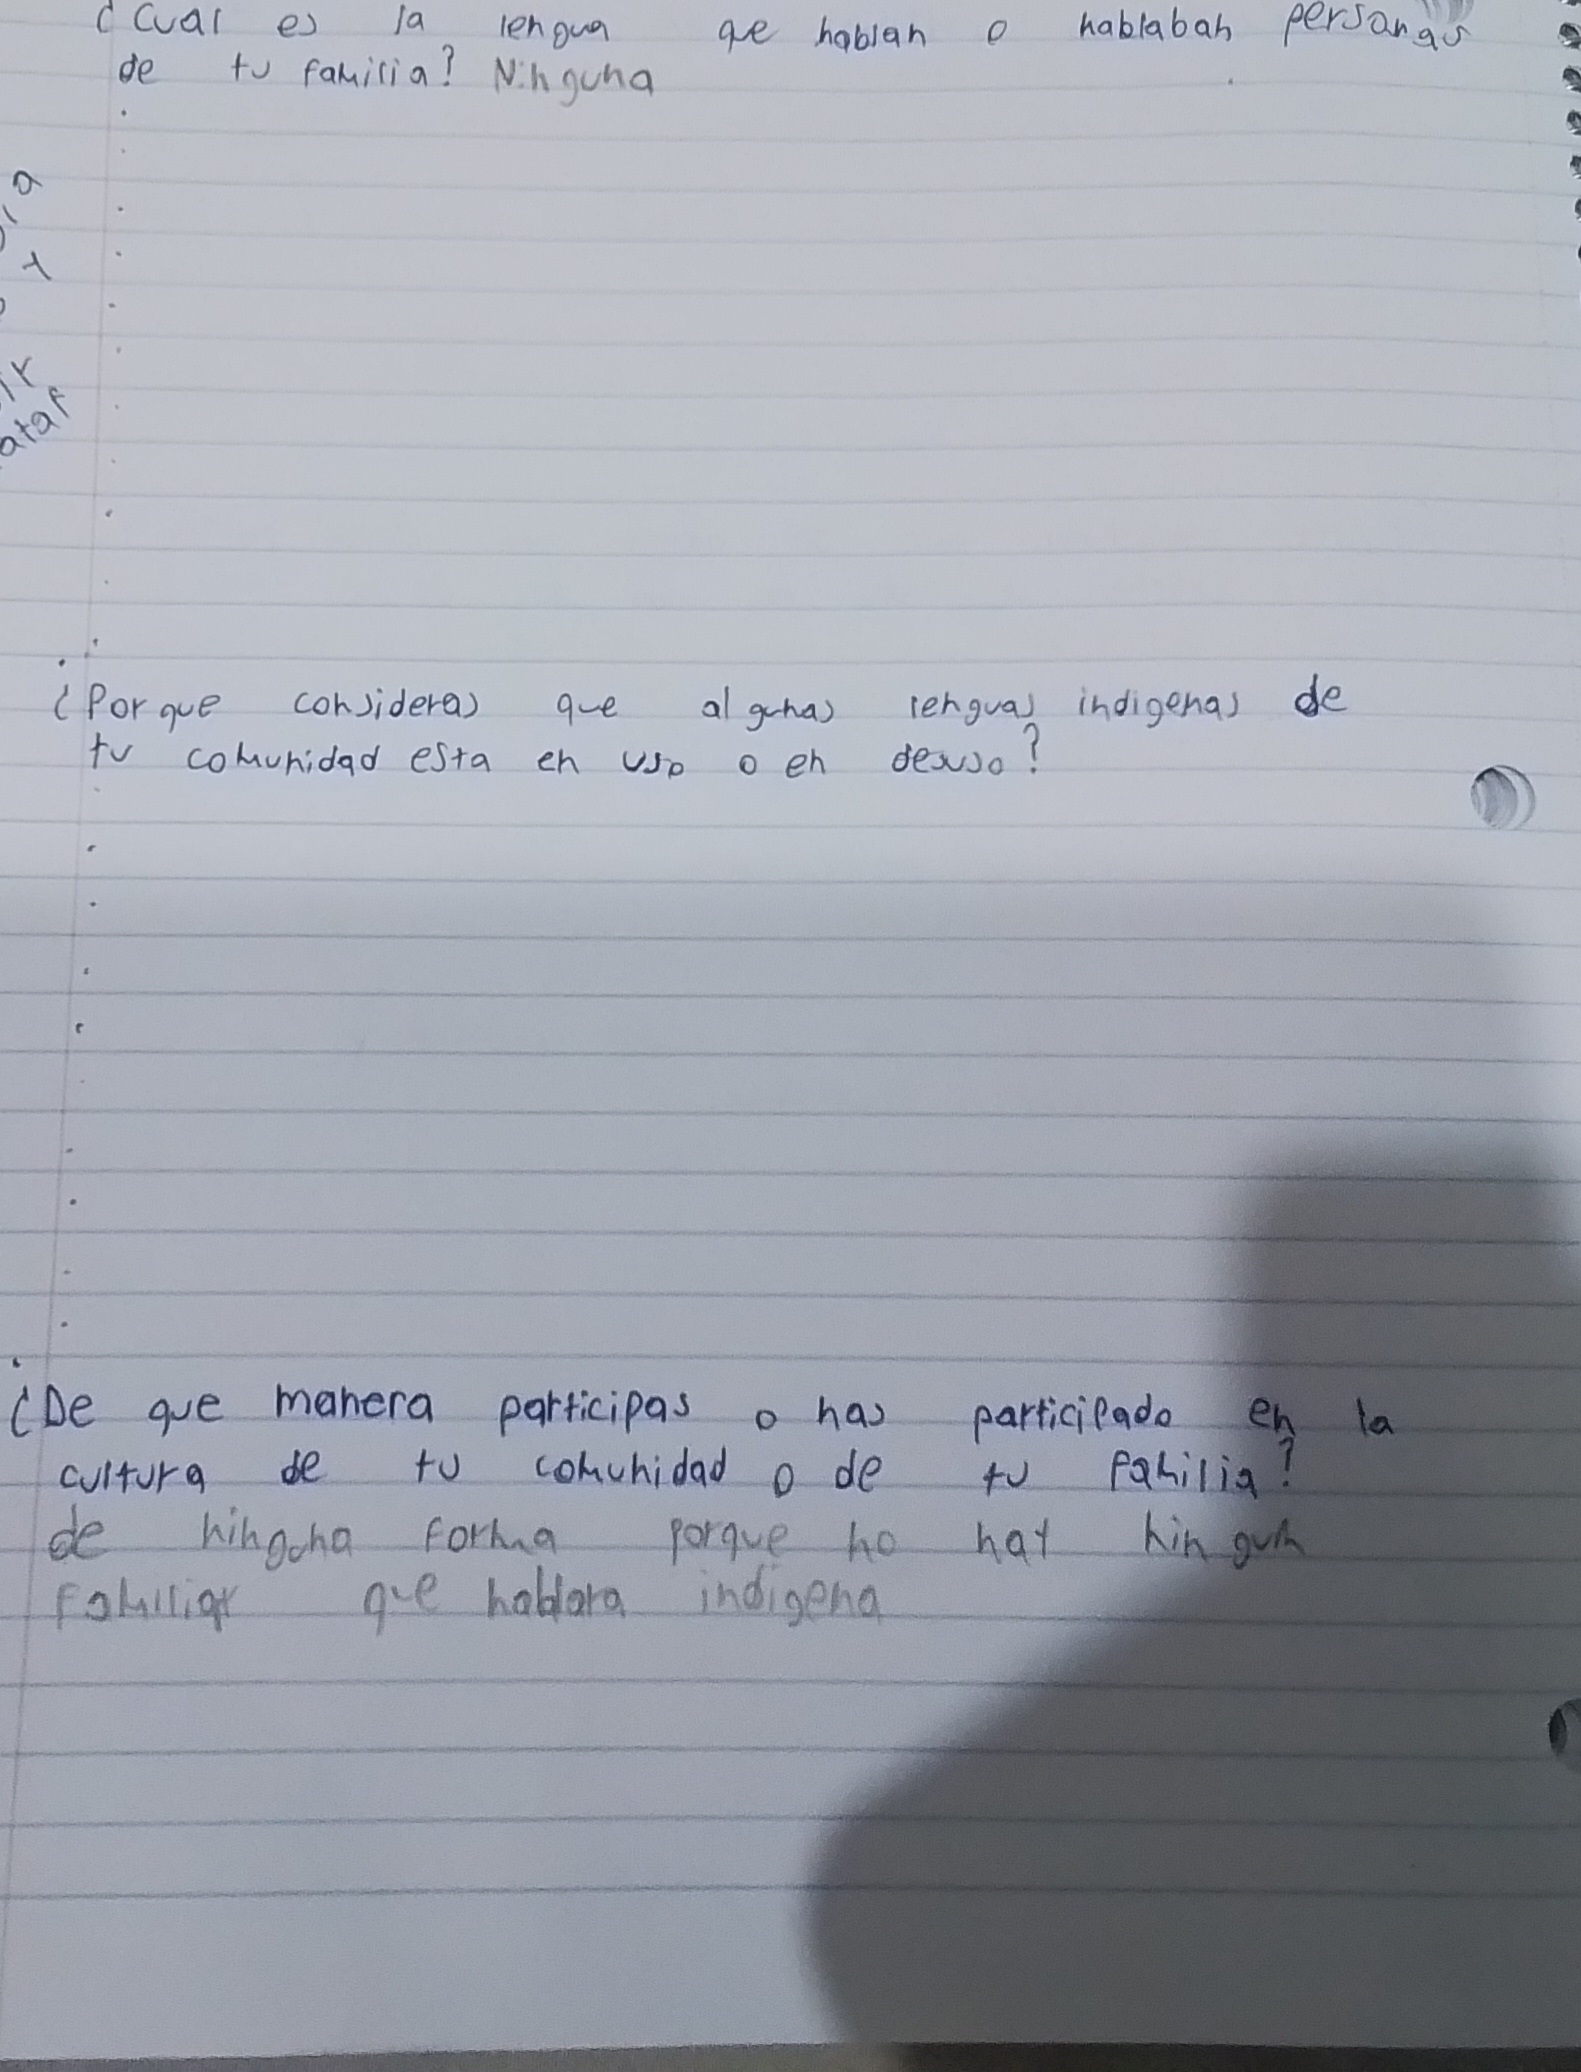 ¿Cual es la lengua que hablan o hablaban personas
de tu familia? Ninguna
a
ir
atar
¿Porque consideras que algunas lenguas indigenas de
tu comunidad esta en uso o en desuso?
¿De que manera participas o has participado en la
cultura de tu comunidad o de tu familia?
de ninguna forma porque no hay ningun
familiar que hablara indigena